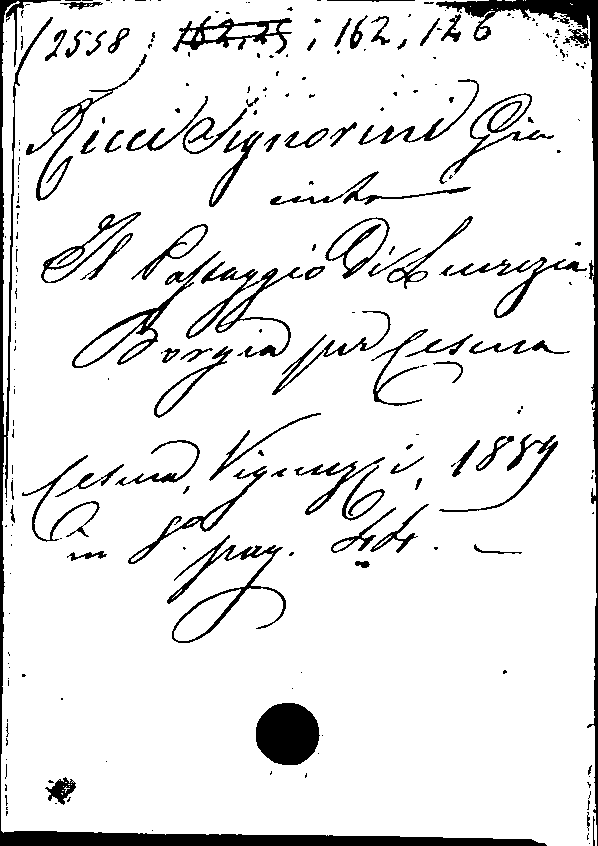 (2558) 162,25; 162, 126
Ricci Signorini Gia
cinto
Il Passaggio di Lucrezia
Borgia per Cesena
Cesena, Vignuzzi, 1889
in 8º pag. 44. —